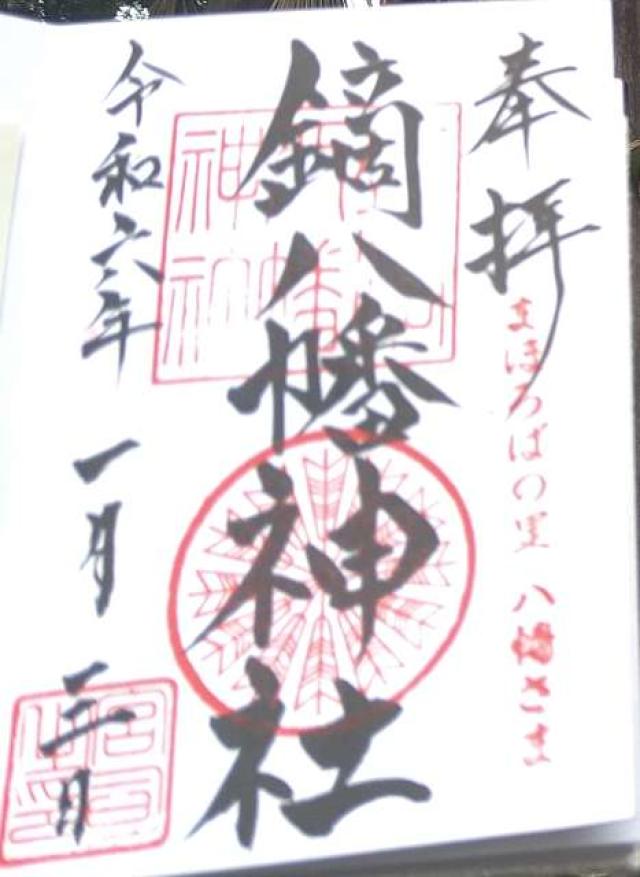 奉拝
まほろばの里 八幡さま
鏑八幡神社
令和六年 一月 三日